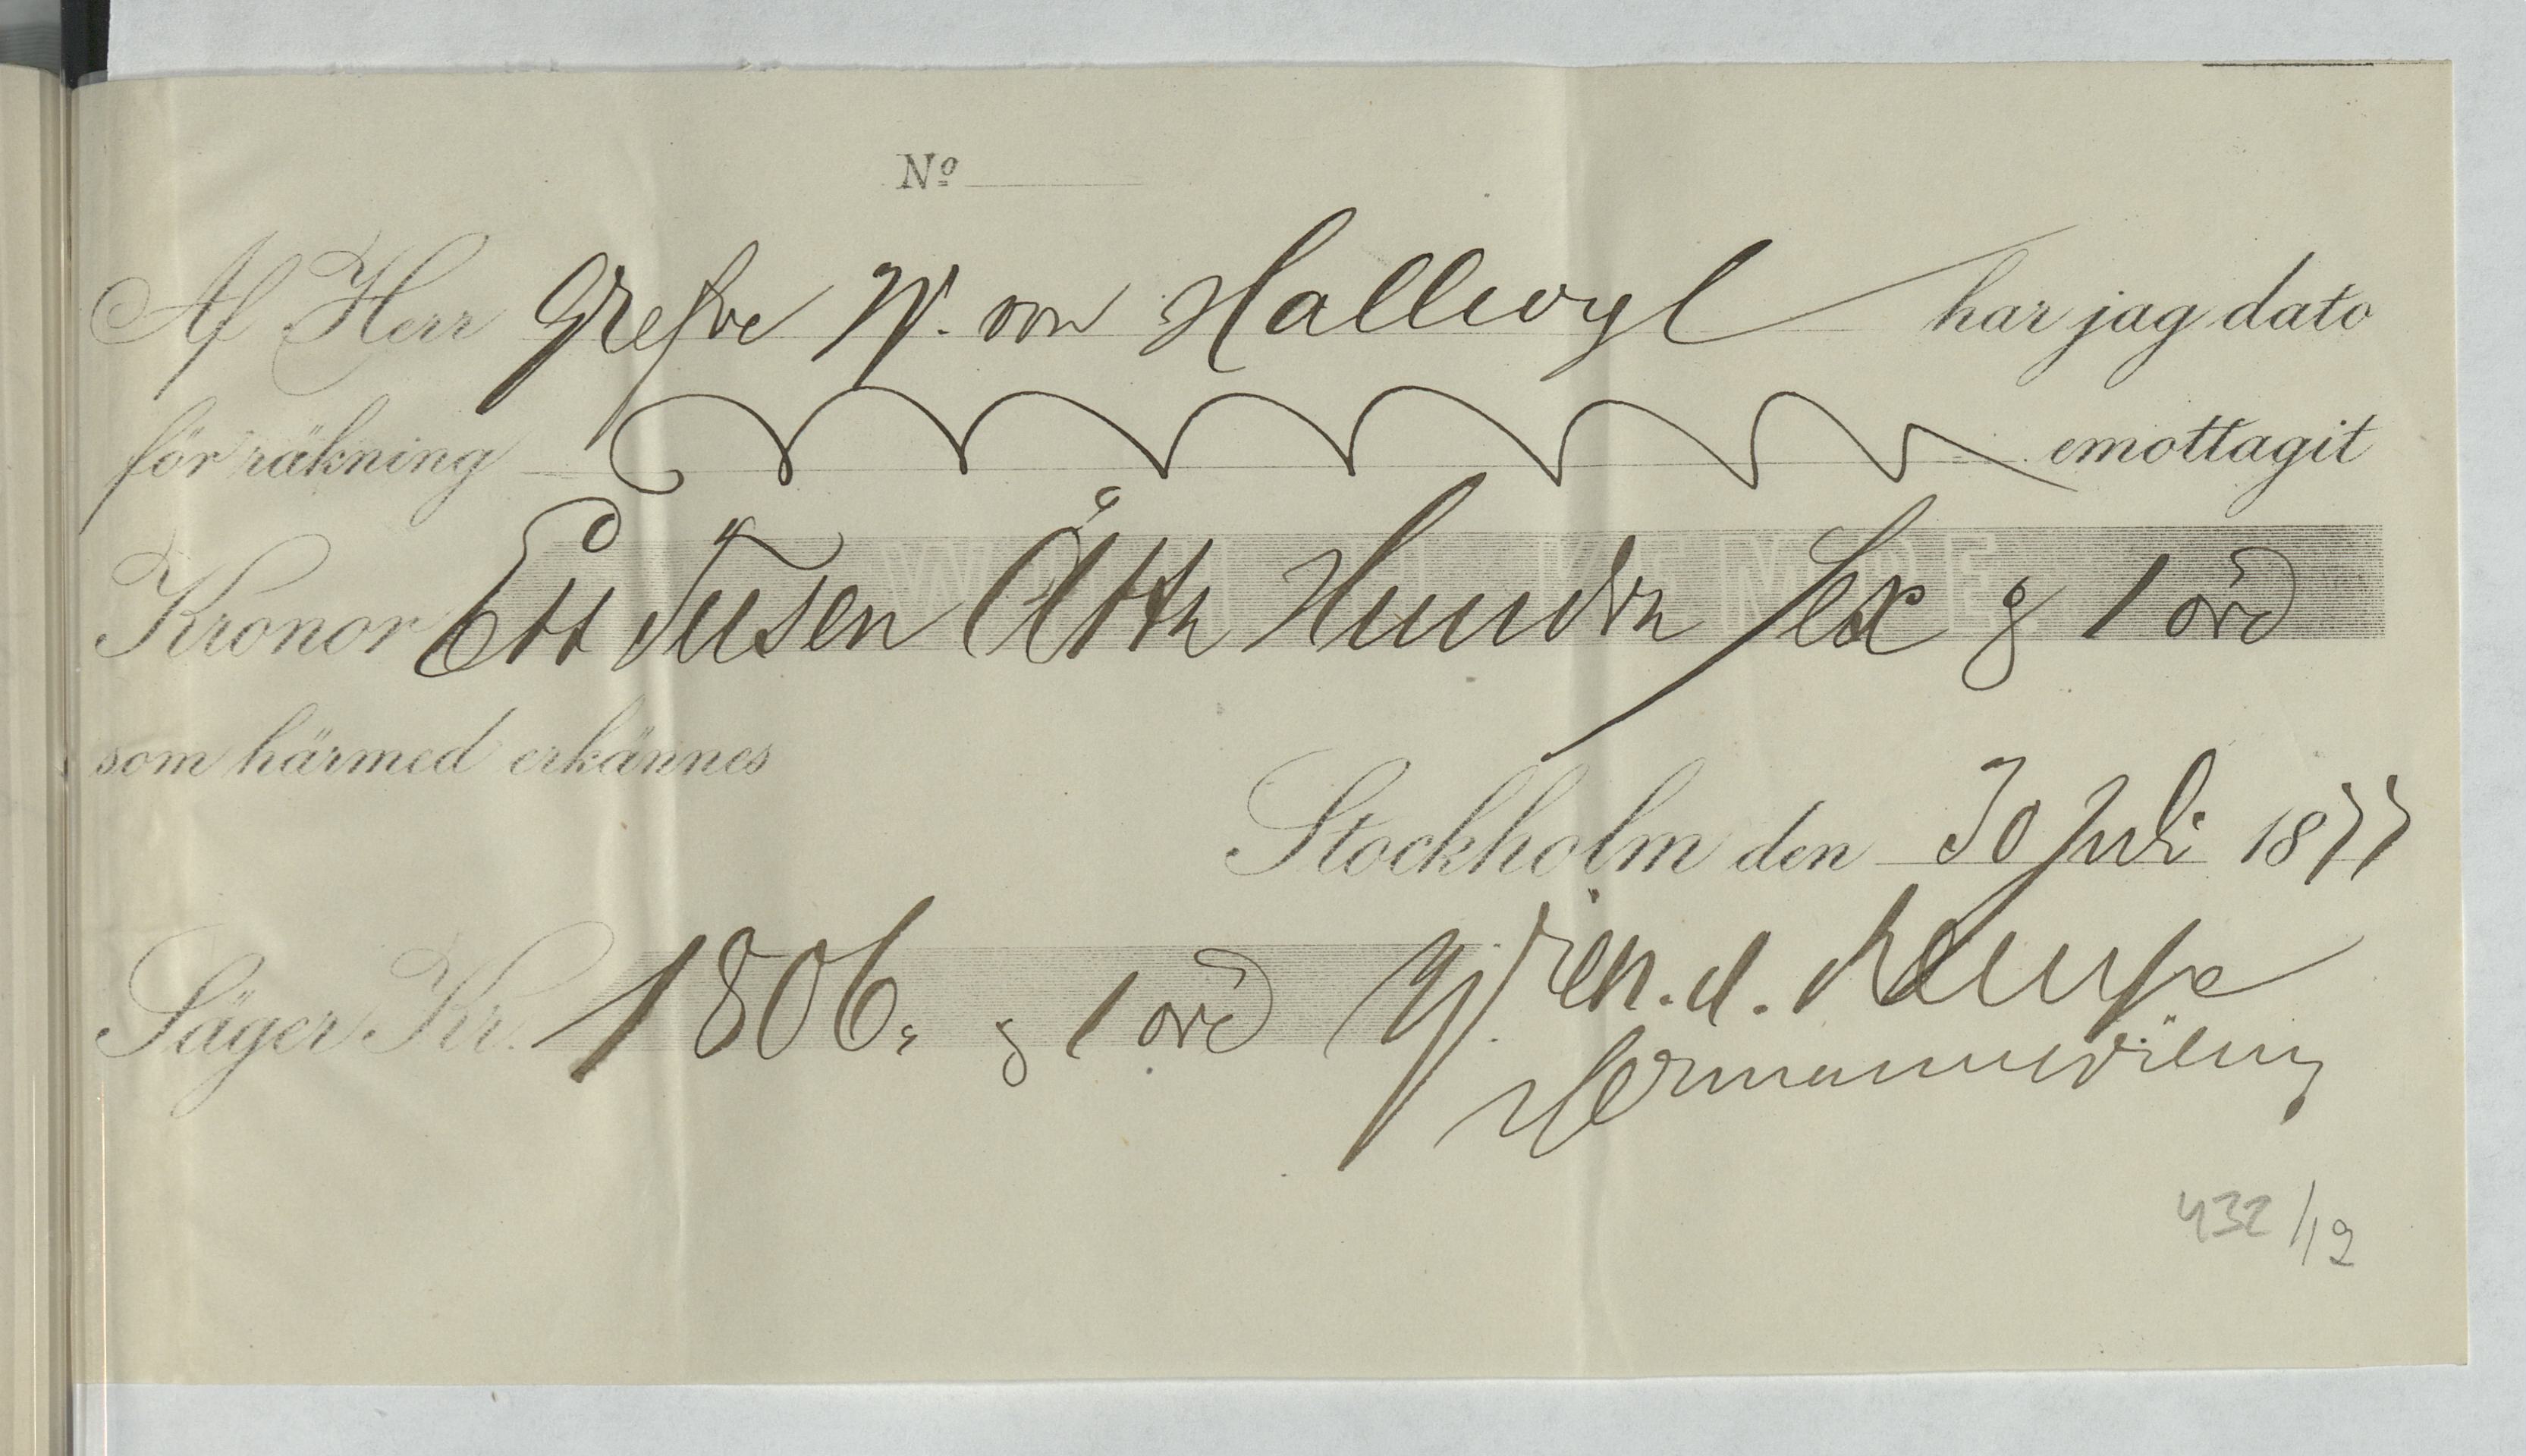 Nº
Af Herr Grefve W. von Hallwyl har jag dato
för räkning emottagit
Kronor Ett Tusen Åtta Hundra Sex & 1 öre
som härmed erkännes
Stockholm den 30 Juli 1877
Säger Kr. 1806. & 1 öre
432/12